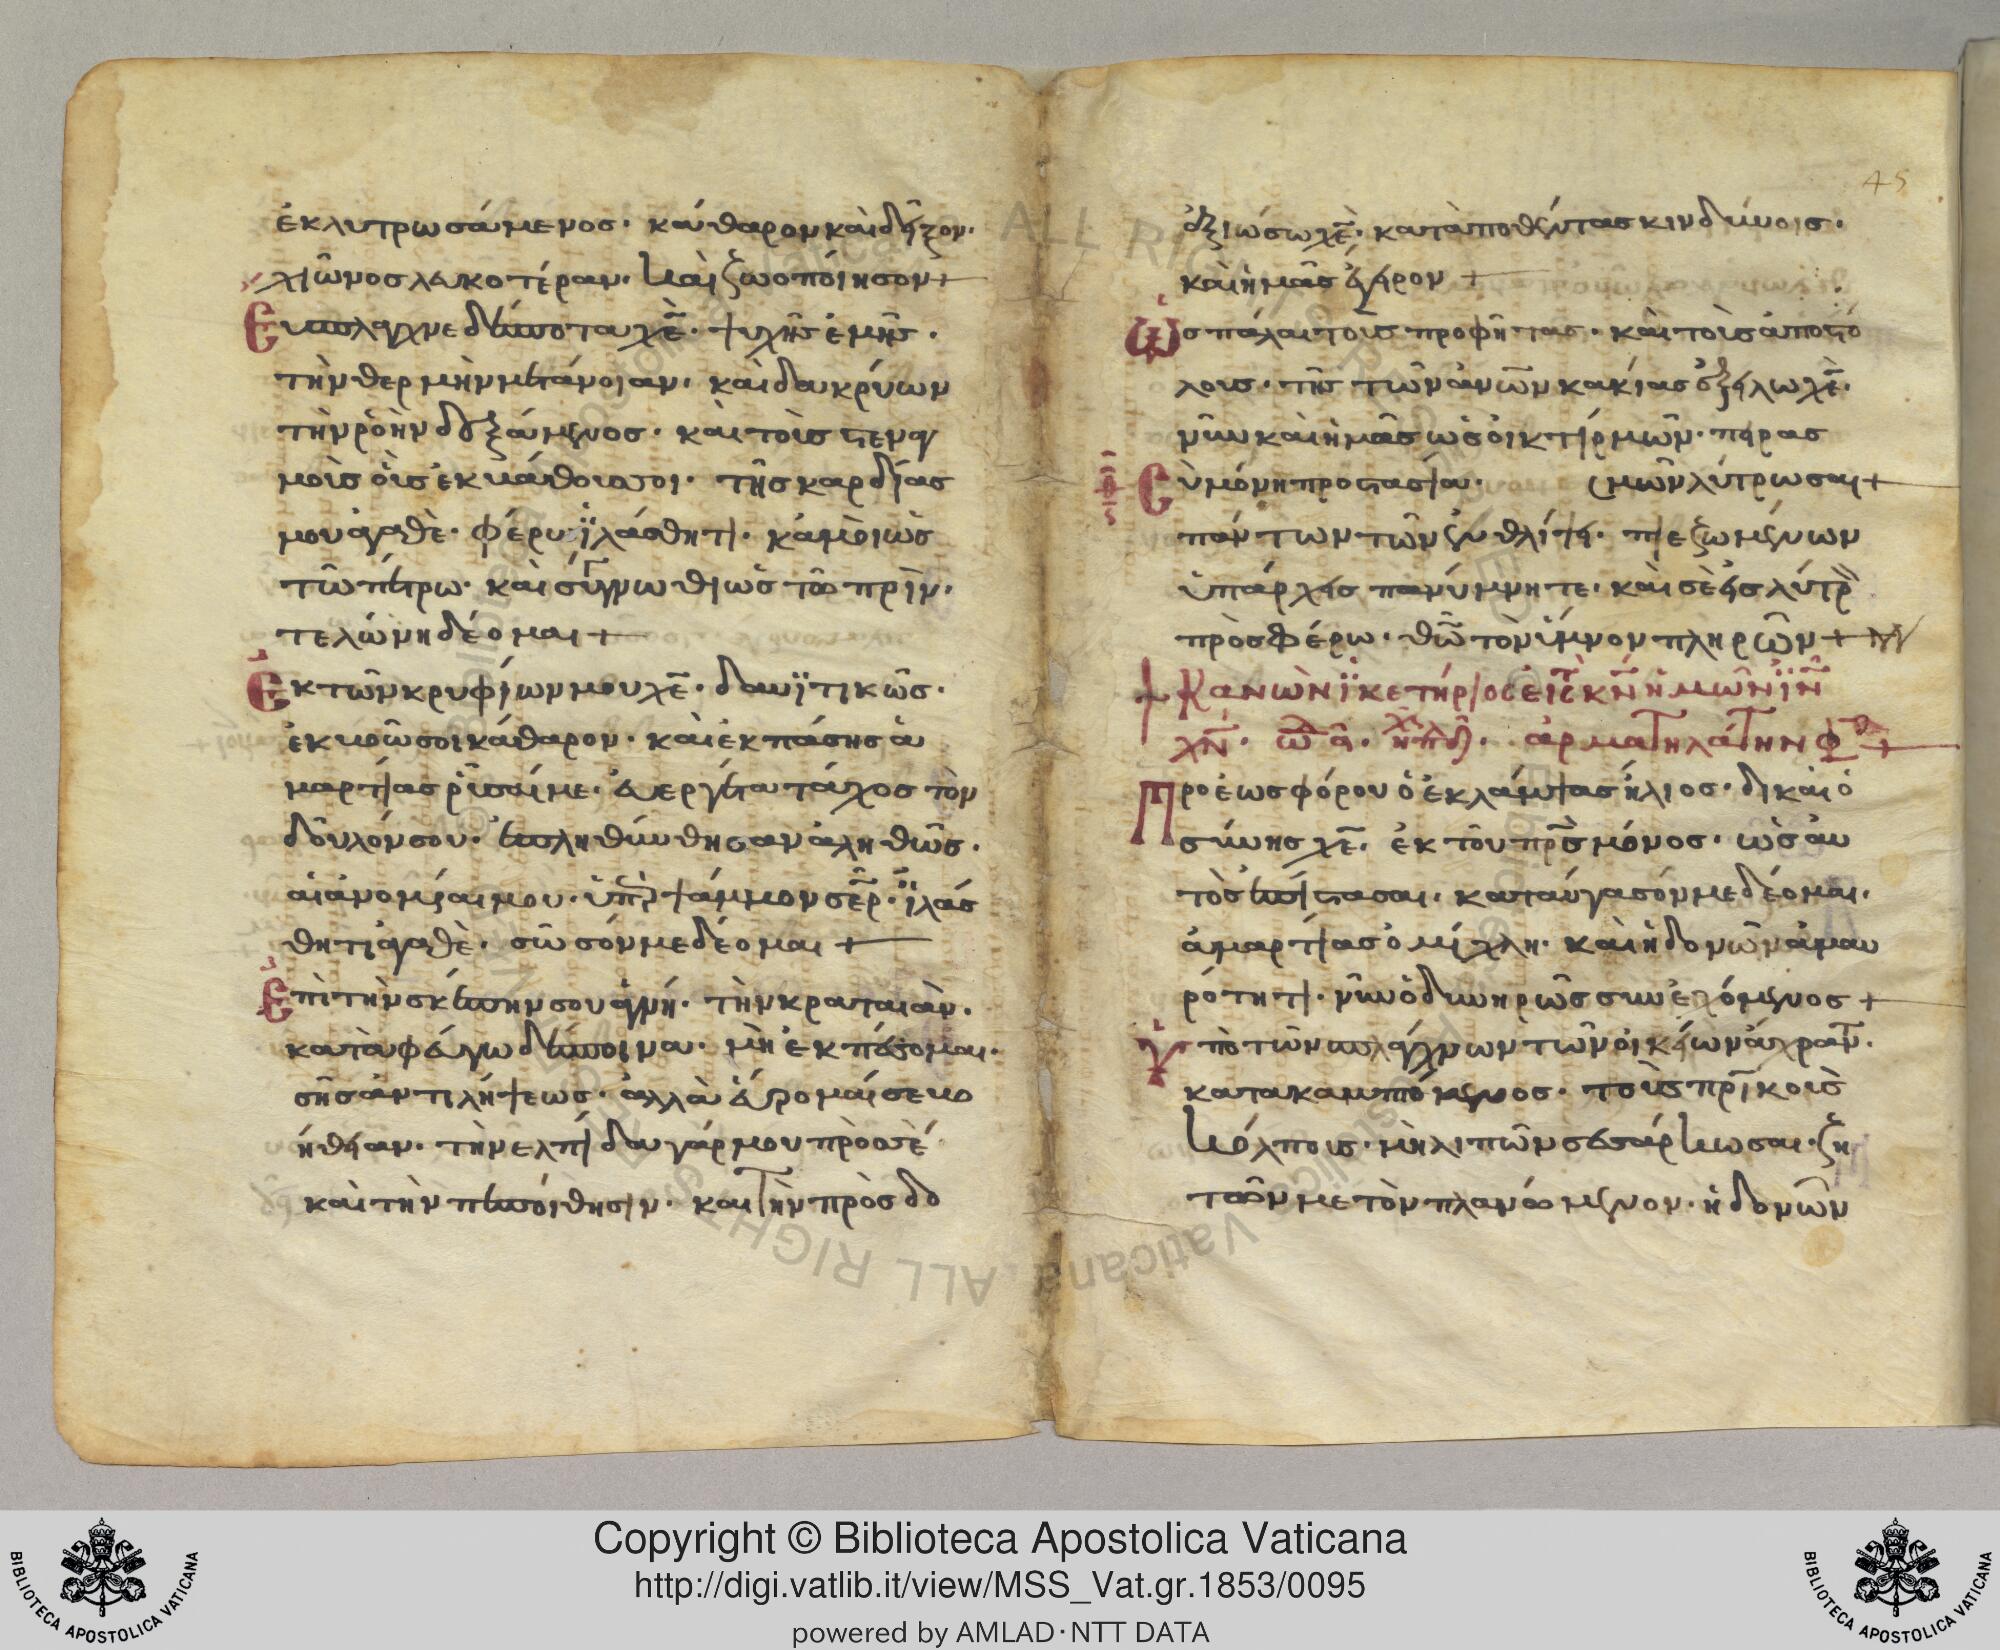 ἐκλυτρωσάμενος· κάθαρον καὶ δεῖξον·
χιῶνος λευκοτέραν· καὶ ζωοποίησον +
Εὔσπλαγχνε δέσποτα χ̅ε̅· ψυχῆς ἐμῆς·
τὴν θερμὴν μετάνοιαν· καὶ δακρύων
τὴν ῥοὴν δεξάμενος· καὶ τοῖς στεναγ
μοῖς οἷς ἐκ βάθους σοι· τῆς καρδίας
μου ἀγαθὲ· φέρω ἱλάσθητι· κἀμοὶ ὡς
τῶ πέτρω· καὶ σύγγνωθι ὡς τῶ πρὶν·
τελώνη δέομαι +
Ἐκ τῶν κρυφίων μου χ̅ε̅· δαυϊτικῶς·
ἐκβοῶ σοι κάθαρον· καὶ ἐκ πάσης ἁ
μαρτίας ῥῦσαί με· εὐεργέτα τάχος τὸν
δοῦλόν σου· ἐπληθύνθησαν ἀληθῶς·
αἱ ἀνομίαι μου· ὑπὲρ ψάμμον σ̅ε̅ρ̅· ἱλάσ
θητι ἀγαθὲ· σῶσόν με δέομαι +
Ἐπὶ τὴν σκέπην σου ἁγνή· τὴν κραταιὰν·
καταφεύγω δέσποινα· μὴ ἐκπέσομαι·
σῆς ἀντιλήψεως· ἀλλὰ εὕρομαί σε βο
ήθειαν· τὴν ἐλπίδα γάρ μου πρὸς σέ
καὶ τὴν πεποίθησιν· καὶ τὴν πρὸς δο
45
ἀξιώσω χ̅ε̅· καταποθέντας κινδύνοις·
καὶ ἡμᾶς ἔγειρον +
Ὡς πάλαι τοῖς προφήταις· καὶ τοῖς ἀποστό
λοις· τῆς τῶν ἀν̅ω̅ν κακίας ἐξείλω χ̅ε̅·
νῦν καὶ ἡμᾶς ὡς οἰκτίρμων· πειρασ
Εὺ μόνη προστασία· (μῶν λύτρωσαι +
πάντων τῶν ἐν θλίψει· πιεζωμένων
ὑπάρχεις πανύμνητε· καὶ σὲ εἰς λύτρ
πρὸσφέρω· θ̅ῶ τὸν ὕμνον πληρῶν +
+ Κανὼν ἱκετήριος εἰς τὸν κ̅ν̅ ἡμῶν ι̅ν̅
χ̅ν̅· ὠδ α· ἦχ πλ δ· ἁρματηλάτην φ +
Προέωσφόρου ὁ ἐκλάμψας ἥλιος· δικαιο
σύνης χ̅ε̅· ἐκ τοῦ π̅ρ̅ς μόνος· ὡς αυ
τὸς ἐπίστασαι· καταύγασόν με δέομαι·
ἁμαρτίας ὁμίχλη· καὶ ἡδονῶν ἀμαυ
ρότητι· νῦν ὀδυνηρῶς συνεχόμενος +
Ὑπὸ τῶν σπλάγχνων τῶν οἰκείων ἀχράντ·
κατακαμπόμενος· τοῖς π̅ρ̅ικοῖς
κόλποις· μὴ λιπῶν σεσάρκωσαι· ζη
τῶν με τὸν πλανώμενον· ἡδονῶν
Copyright © Biblioteca Apostolica Vaticana
http://digi.vatlib.it/view/MSS_Vat.gr.1853/0095
powered by AMLAD·NTT DATA
BIBLIOTECA APOSTOLICA VATICANA
BIBLIOTECA APOSTOLICA VATICANA